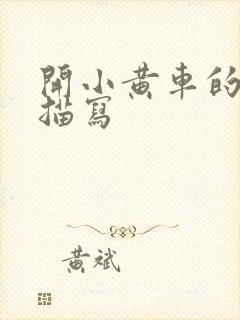 開小黃車的
描寫
黃斌